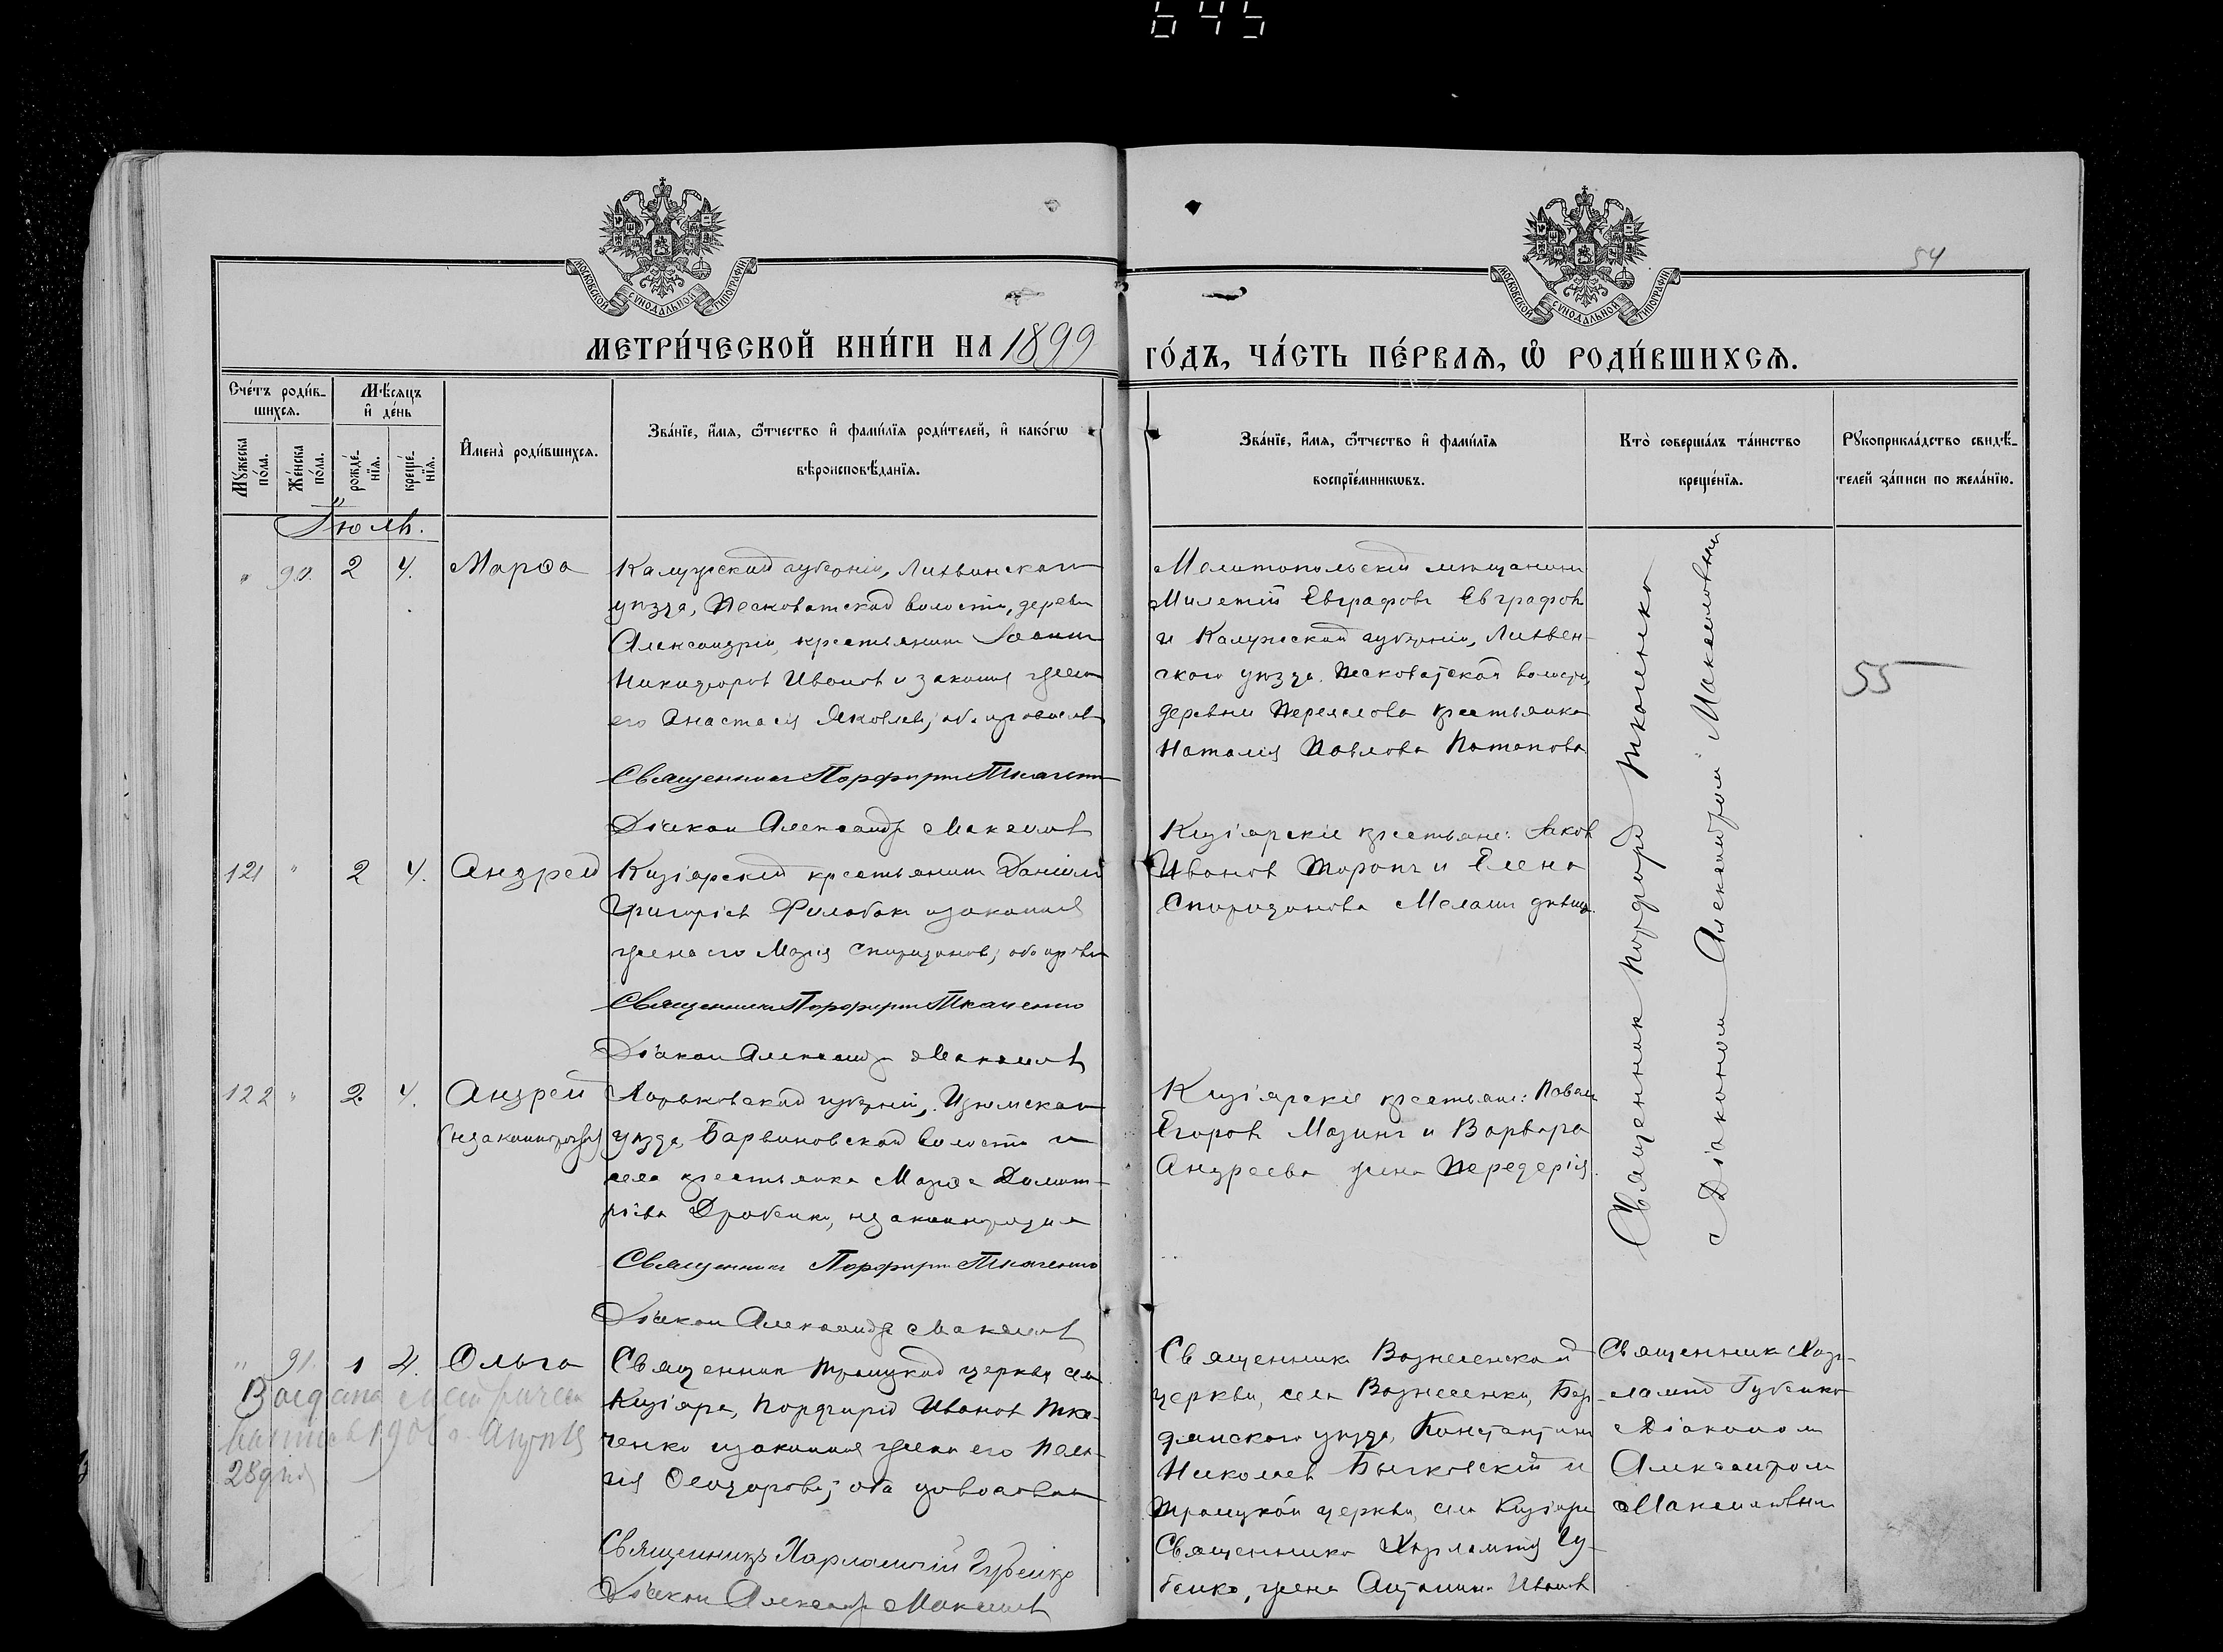 645
54
МОСКОВСКОЙ СѴНОДАЛЬНОЙ ТИПОГРАФІИ
МОСКОВСКОЙ СѴНОДАЛЬНОЙ ТИПОГРАФІИ
МЕТРИ́ЧЕСКОЙ КНИ́ГИ НА 1899 ГО́ДЪ, ЧА́СТЬ ПЕ́РВАЯ, Ѡ҆ РОДИ́ВШИХСЯ.
Сче́тъ роди́в-
шихся.
Мѣ́сяцъ
и҆ де́нь
Мꙋ́жеска
по́ла.
Же́нска
по́ла.
рожде́-
нїя.
креще́-
нїя.
И҆мена̀ роди́вшихся.
Зва́нїе, и҆́мя, ѻ҆́тчество и҆ фами́лїя роди́телей, и҆ како́гѡ
вѣроисповѣ́данїя.
Зва́нїе, и҆́мя, ѻ҆́тчество и҆ фами́лїя
воспрїе́мникѡвъ.
Кто̀ соверша́лъ та́инство
креще́нїя.
Рꙋкоприкла́дство свидѣ́-
телей за́писи по жела́нїю.
Іюль.
" 90. 2 4. Марѳа
Калужской губерніи, Лихвинскаго
уѣзда, Песковатской волости, деревни
Александріи, крестьянинъ Іоаннъ
Никифоровъ Ивановъ и законная жена
его Анастасія Яковлева; оба православн
Священникъ Порфирій Ткаченко
Діаконъ Александръ Максимов
Мелитопольскій мѣщанинъ
Милетій Евграфовъ Евграфовъ
и Калужской губерніи, Лихвен-
скаго уѣзда, Песковатской волости
деревни крестьянка
Наталія Павлова Потапова
Священник Порфирій Ткаченко
с Діакономъ Александромъ Максимовымъ
55
121 " 2 4. Андрей
Кизіярскій крестьянинъ Даніилъ
Григоріевъ и законная
жена его Марія Спиридонова; оба прав
Священникъ Порфирій Ткаченко
Діаконъ Александръ Максимов
Кизіярскіе крестьяне: Іаковъ
Ивановъ и Елена
Спиридонова дѣвица
122 " 2. 4. Андрей
(незаконнорожд)
Харьковской губерніи, Изюмскаго
уѣзда, Барвиновской волости и
села крестьянка Марѳа Димит-
ріева Дробенко, незаконнорожден
Священникъ Порфирій Ткаченко
Діаконъ Александръ Максимов
Кизіярскіе крестьяне: Павелъ
Егоровъ и Варвара
Андреева жена
" 91. 1 4. Ольга
Священникъ Троицкой церкви села
Кизіяра, Порфирій Ивановъ Тка-
ченко и законная жена его Пела-
гія Ѳеодорова; оба православн
Священникъ Харлампій Губенко
Діаконъ Александръ Максимов
Выдана
1906 г. Августа
28 дня
Священникъ Вознесенской
церкви, села Вознесенки, Бер-
дянскаго уѣзда, Константинъ
Николаевъ Бычковскій и
Троицкой церкви, села Кизіяра
Священника Харлампія Гу-
бенко, жена Антонина Иванов
Священник Хар-
лампій Губенко
с Діакономъ
Александромъ
Максимовымъ